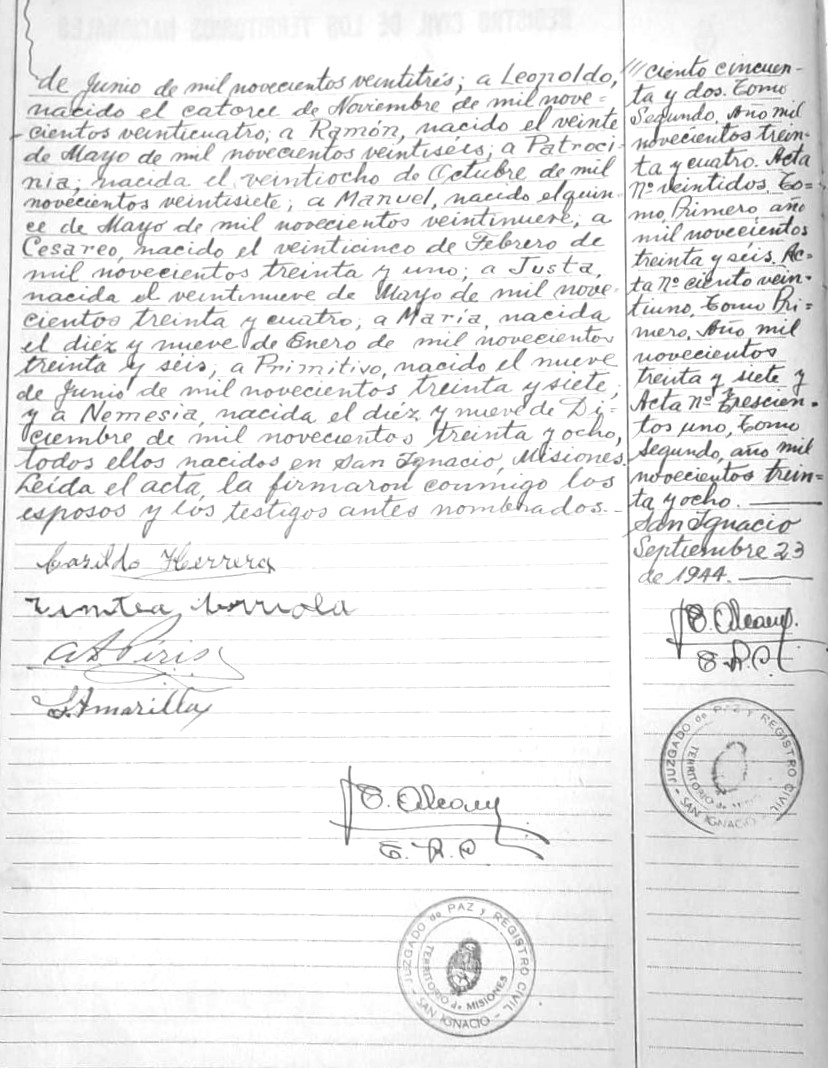 de Junio de mil novecientos veintitrés; a Leopoldo,
nacido el catorce de Noviembre de mil nove=
cientos veinticuatro; a Ramón, nacido el veinte
de Mayo de mil novecientos veintiséis; a Patroci-
nia; nacida el veintiocho de Octubre de mil
novecientos veintisiete; a Manuel, nacido el quin-
ce de Mayo de mil novecientos veintinueve; a
Cesareo, nacido el veinticinco de Febrero de
mil novecientos treinta y uno; a Justa,
nacida el veintinueve de Mayo de mil nove=
cientos treinta y cuatro; a María, nacida
el diéz y nueve de Enero de mil novecientos
treinta y séis; a Primitivo, nacido el nueve
de Junio de mil novecientos treinta y siete;
y a Nemesia, nacida el diéz y nueve de Di=
ciembre de mil novecientos treinta y ocho,
todos ellos nacidos en San Ignacio, Misiones.
Leída el acta, la firmaron conmigo los
esposos y los testigos antes nombrados.-
Carildo Herrera
Arriola
A Piris
Amarilla
E. R. P.
JUZGADO de PAZ y REGISTRO CIVIL
TERRITORIO de MISIONES
- SAN IGNACIO -
/// ciento cincuen-
ta y dos. Tomo
Segundo, Año mil
novecientos trein-
ta y cuatro. Acta
Nº veintidos, To=
mo, Primero, año
mil novecientos
treinta y séis. Ac-
ta Nº ciento vein-
tiuno, Tomo Pri=
mero, Año mil
novecientos
treinta y siete y
Acta nº Trescien-
tos uno, Tomo
Segundo, año mil
novecientos trein-
ta y ocho.
San Ignacio
Septiembre 23
de 1944.
E. R. P.
JUZGADO de PAZ y REGISTRO CIVIL
TERRITORIO de
- SAN IGNACIO -